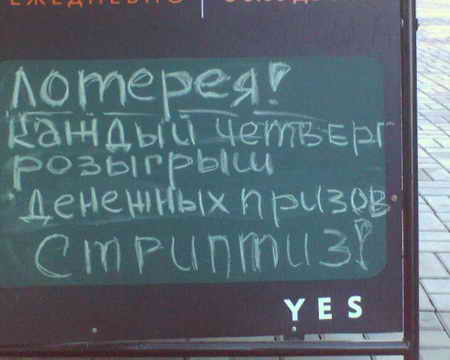 ЕЖЕДНЕВНО
Лотерея!
каждый четверг
розыгрыш
денежных призов
Стриптиз!
YES